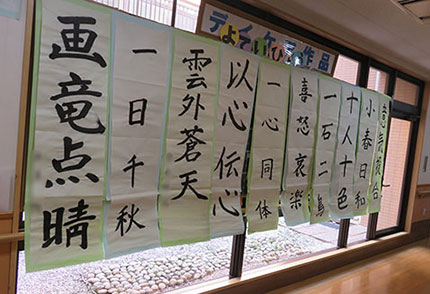 作品
意気投合
小春日和
十人十色
一石二鳥
喜怒哀楽
一心同体
以心伝心
雲外蒼天
一日千秋
画竜点晴